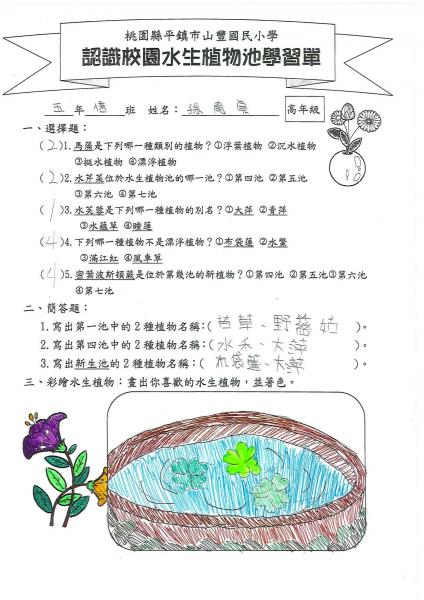 桃園縣平鎮市山豐國民小學
認識校園水生植物池學習單
五年信班 姓名：孫 高年級
一、選擇題：
(2)1.馬藻是下列哪一種類別的植物？①浮葉植物 ②沉水植物
③挺水植物 ④漂浮植物
(2)2.水芹菜位於水生植物池的哪一池？①第四池 ②第五池
③第六池 ④第七池
(1)3.水芙蓉是下列哪一種植物的別名？①大萍 ②青萍
③水蘊草 ④睡蓮
(4)4.下列哪一種植物不是漂浮植物？①布袋蓮 ②水鱉
③滿江紅 ④風車草
(4)5.密葉波斯頓蕨是位於第幾池的新植物？①第四池 ②第五池③第六池
④第七池
二、簡答題：
1.寫出第一池中的2種植物名稱：(苦草、野慈姑)。
2.寫出第四池中的2種植物名稱：(水禾、大萍)。
3.寫出新生池的2種植物名稱：(布袋蓮、大萍)。
三、彩繪水生植物：畫出你喜歡的水生植物，並著色。